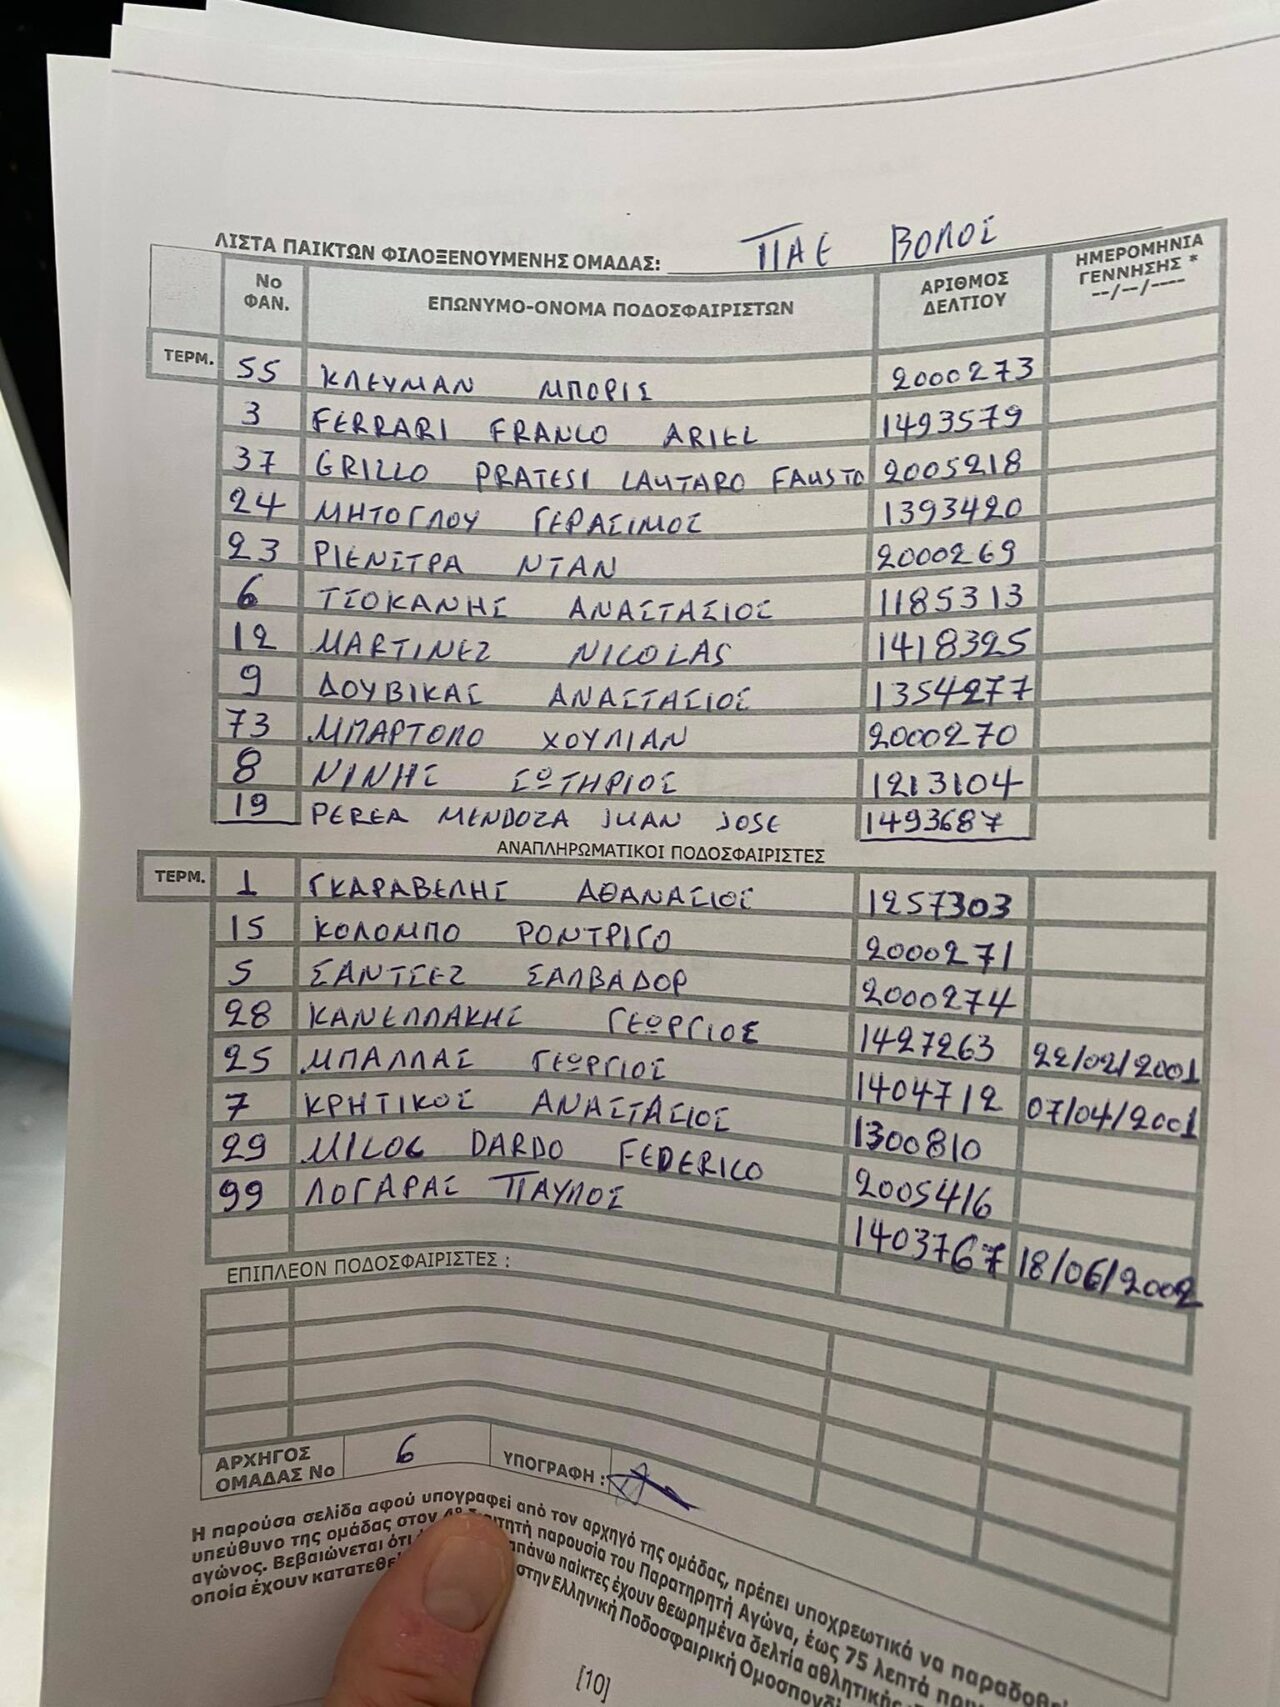 ΛΙΣΤΑ ΠΑΙΚΤΩΝ ΦΙΛΟΞΕΝΟΥΜΕΝΗΣ ΟΜΑΔΑΣ: ΠΑΕ ΒΟΛΟΣ
No ΦΑΝ. ΕΠΩΝΥΜΟ-ΟΝΟΜΑ ΠΟΔΟΣΦΑΙΡΙΣΤΩΝ ΑΡΙΘΜΟΣ ΔΕΛΤΙΟΥ ΗΜΕΡΟΜΗΝΙΑ ΓΕΝΝΗΣΗΣ * --/--/----
ΤΕΡΜ. 55 ΚΛΕΥΜΑΝ ΜΠΟΡΙΣ 2000273
3 FERRARI FRANCO ARIEL 1493579
37 GRILLO PRATESI LAUTARO FAUSTO 2005218
24 ΜΗΤΟΓΛΟΥ ΓΕΡΑΣΙΜΟΣ 1393420
23 ΡΙΕΝΣΤΡΑ ΝΤΑΝ 2000269
6 ΤΣΟΚΑΝΗΣ ΑΝΑΣΤΑΣΙΟΣ 1185313
12 MARTINEZ NICOLAS 1418325
9 ΔΟΥΒΙΚΑΣ ΑΝΑΣΤΑΣΙΟΣ 1354277
73 ΜΠΑΡΤΟΛΟ ΧΟΥΛΙΑΝ 2000270
8 ΝΙΝΗΣ ΣΩΤΗΡΙΟΣ 1213104
19 PEREA MENDOZA JUAN JOSE 1493687
ΑΝΑΠΛΗΡΩΜΑΤΙΚΟΙ ΠΟΔΟΣΦΑΙΡΙΣΤΕΣ
ΤΕΡΜ. 1 ΓΚΑΡΑΒΕΛΗΣ ΑΘΑΝΑΣΙΟΣ 1257303
15 ΚΟΛΟΜΠΟ ΡΟΝΤΡΙΓΟ 2000271
5 ΣΑΝΤΣΕΖ ΣΑΛΒΑΔΟΡ 2000274
28 ΚΑΝΕΛΛΑΚΗΣ ΓΕΩΡΓΙΟΣ 1427263 22/02/2001
25 ΜΠΑΛΛΑΣ ΓΕΩΡΓΙΟΣ 1404712 07/04/2001
7 ΚΡΗΤΙΚΟΣ ΑΝΑΣΤΑΣΙΟΣ 1300810
29 MILOC DARDO FEDERICO 2005416
99 ΛΟΓΑΡΑΣ ΠΑΥΛΟΣ 1403767 18/06/2002
ΕΠΙΠΛΕΟΝ ΠΟΔΟΣΦΑΙΡΙΣΤΕΣ :
ΑΡΧΗΓΟΣ ΟΜΑΔΑΣ Νο 6 ΥΠΟΓΡΑΦΗ :
Η παρούσα σελίδα αφού υπογραφεί από τον αρχηγό της ομάδας, πρέπει υποχρεωτικά να παραδοθεί
υπεύθυνο της ομάδας στον 4ο διαιτητή παρουσία του Παρατηρητή Αγώνα, έως 75 λεπτά πριν
αγώνος. Βεβαιώνεται ότι παίκτες έχουν θεωρημένα δελτία αθλητικής
οποία έχουν κατατεθεί στην Ελληνική Ποδοσφαιρική Ομοσπονδί
[10]